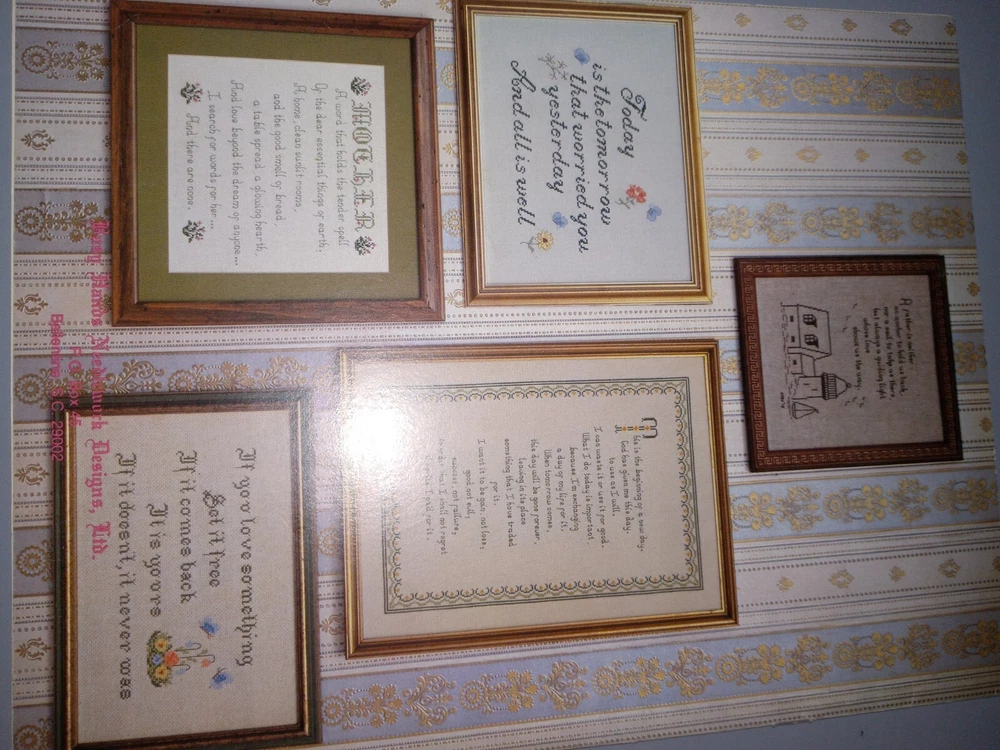 MOTHER
A word that holds the tender spell
Of the dear essential things of earth;
A home, clean sunlit rooms,
and the good smell of bread,
a table spread, a glowing hearth,
And love beyond the dream of anyone...
I search for words for her...
And there are none.
Today
is the tomorrow
that worried you
yesterday
And all is well
A father is neither
an anchor to hold us back,
nor a sail to take us there,
but always a guiding light
whose love
shows us the way.
This is the beginning of a new day.
God has given me this day
to use as I will.
I can waste it or use it for good.
What I do today is important,
because I'm exchanging
a day of my life for it.
When tomorrow comes,
this day will be gone forever,
leaving in its place
something that I have traded
for it.
I want it to be gain, not loss;
good, not evil;
success, not failure;
that I shall not regret
for it.
If you love something
Set it free
If it comes back
It is yours
If it doesn't, it never was
Needlework Designs, Ltd.
P.O. Box 45
S.C. 29002